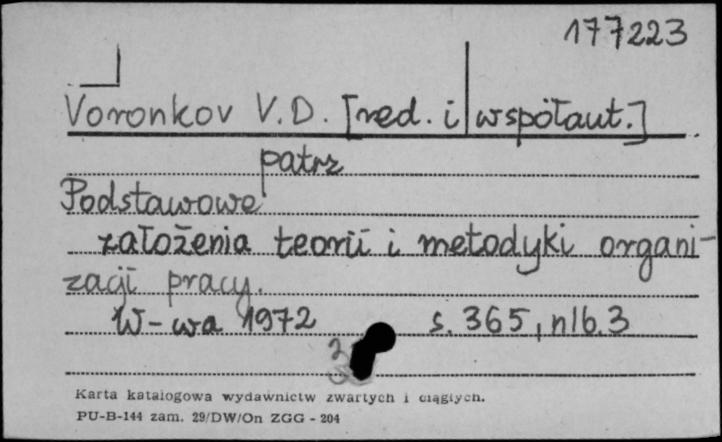 177223
Voronkov V.D. [red. i współaut.]
patrz
Podstawowe
założenia teorii i metodyki organi-
zacji pracy.
W-wa 1972 s. 365, nlb. 3
Karta katalogowa wydawnictw zwartych i ciągłych.
PU-B-144 zam. 29/DW/On ZGG - 204